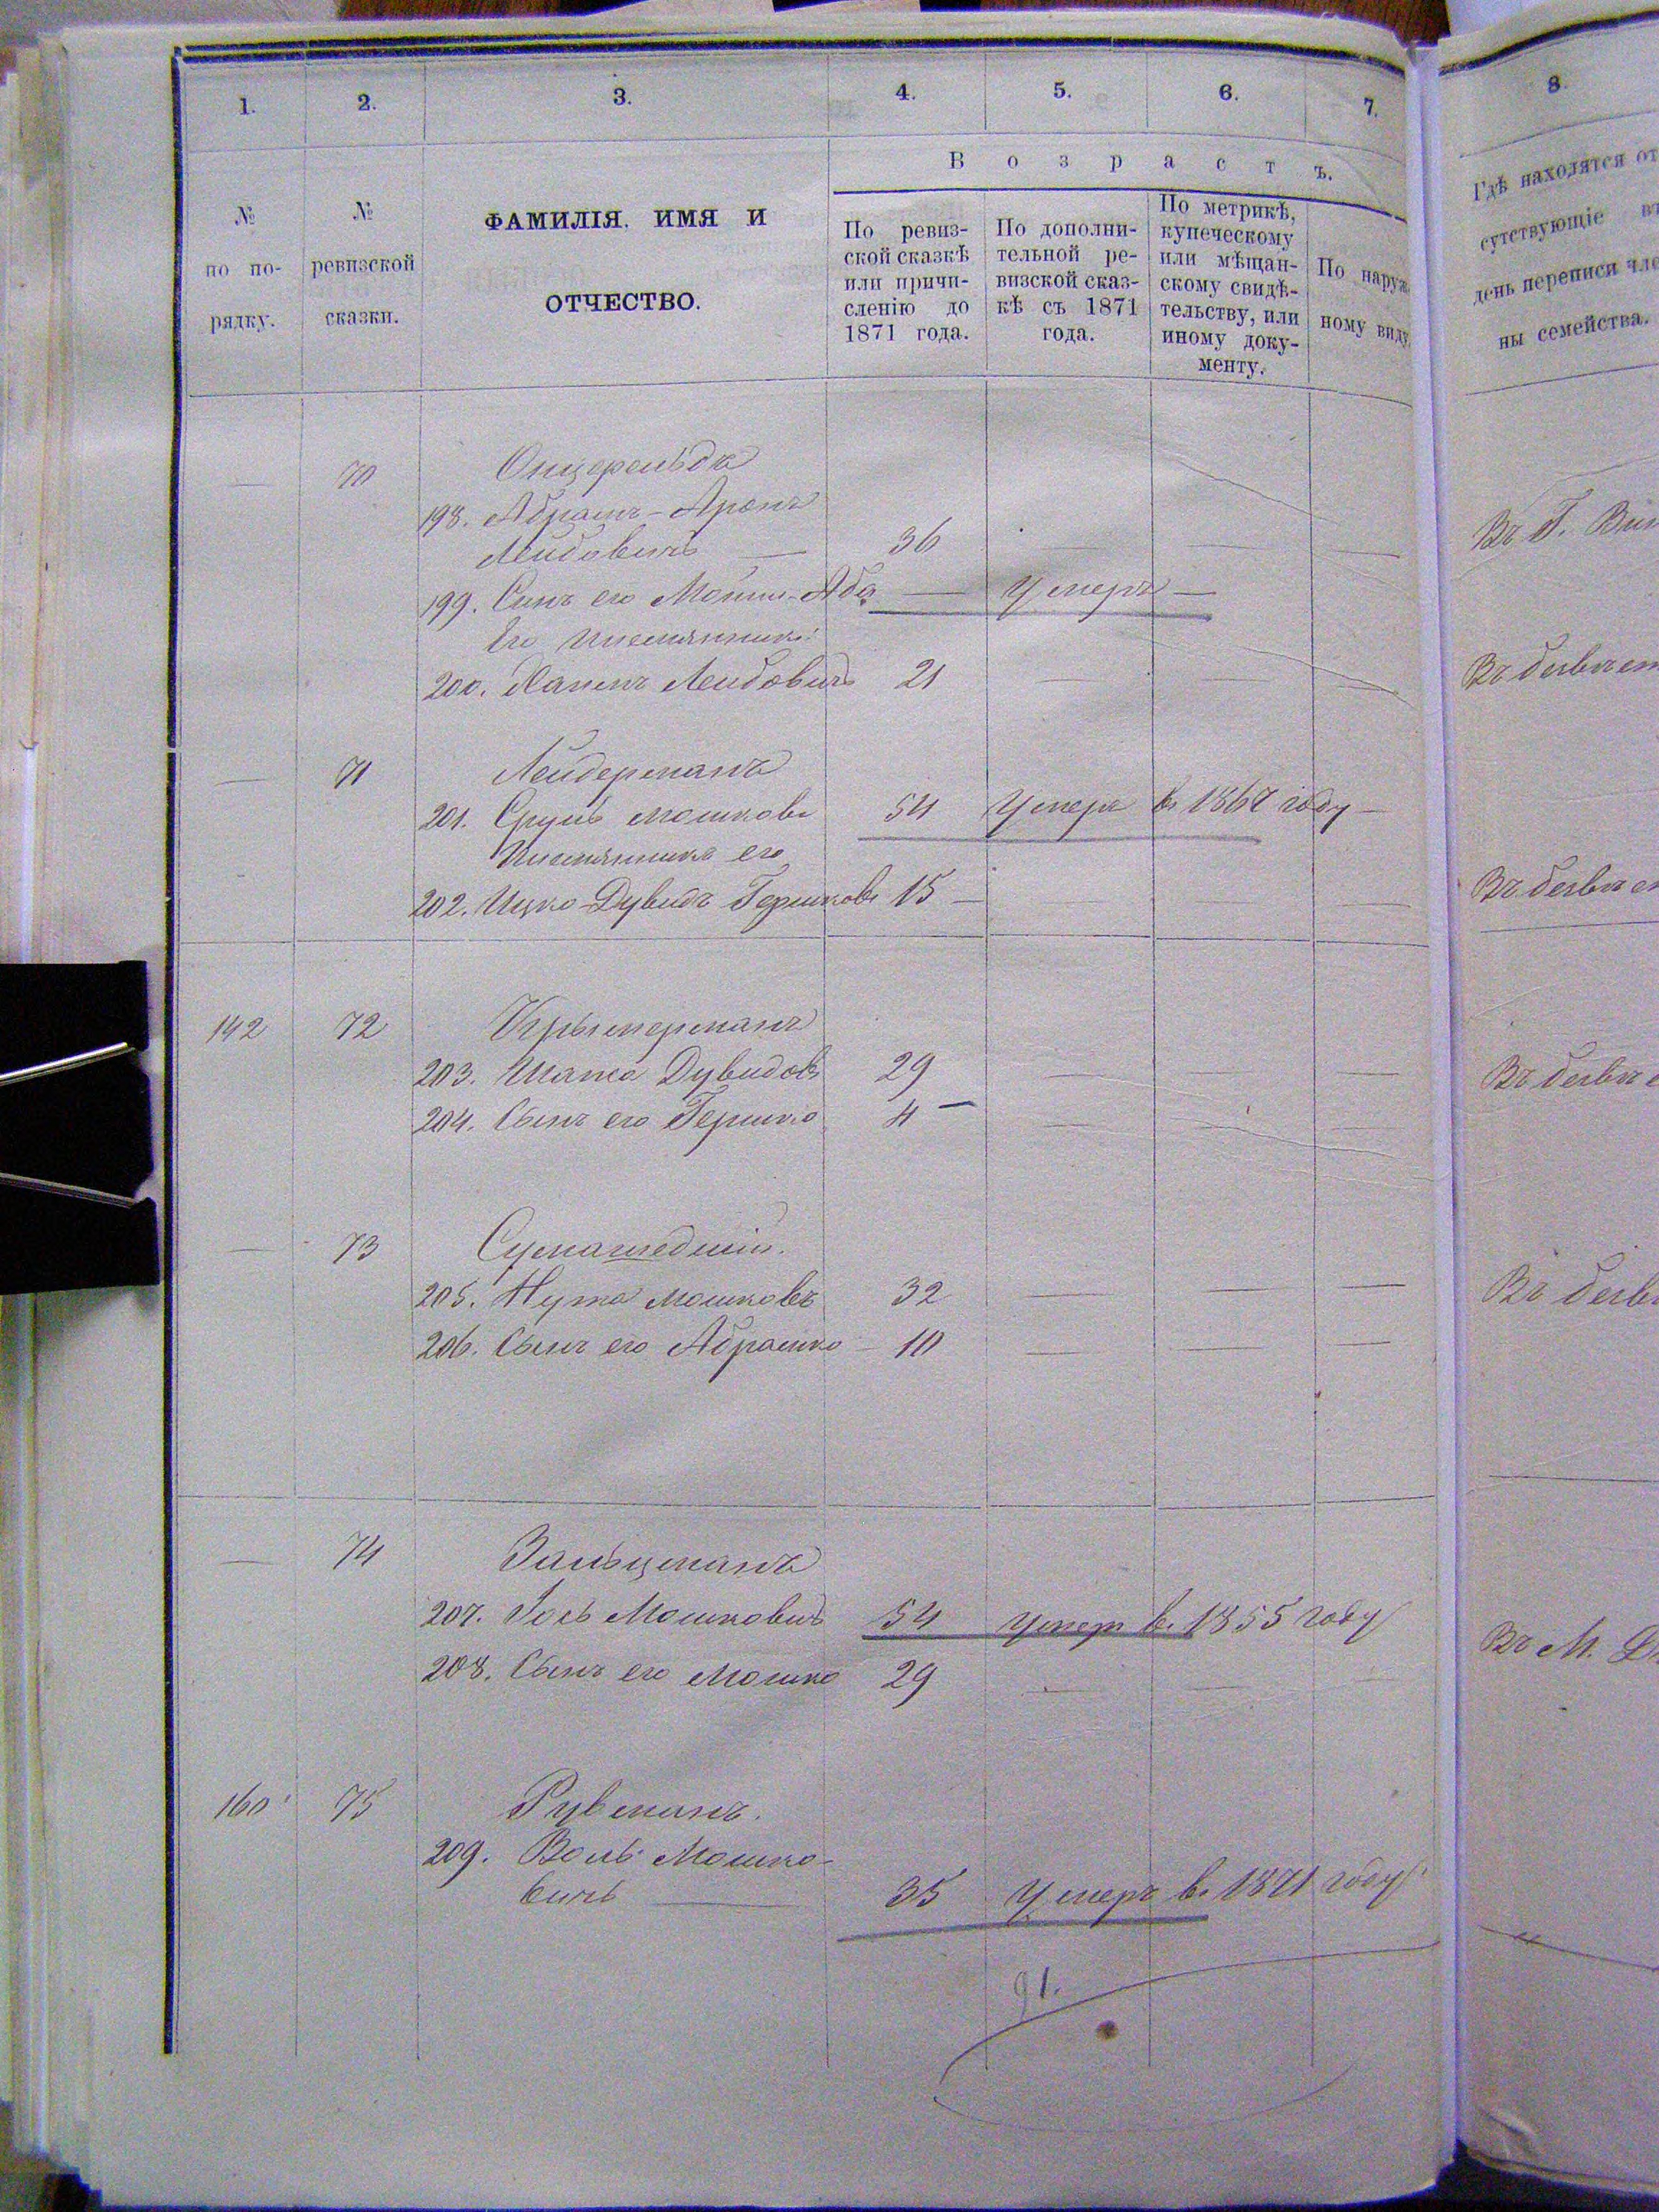 1. 2. 3. 4. 5. 6. 7.
№ по по-рядку.
№ ревизской сказки.
ФАМИЛІЯ, ИМЯ И ОТЧЕСТВО.
Возрастъ.
По ревиз-
ской сказкѣ
или причи-
сленію до
1871 года.
По дополни-
тельной ре-
визской сказ-
кѣ съ 1871
года.
По метрикѣ,
купеческому
или мѣщан-
скому свидѣ-
тельству, или
иному доку-
менту.
По наруж
ному виду
— 70
198. Абрамъ-Аронъ
Лейбовичъ — 36 — — —
199. Сынъ его — Умеръ —
Его племянникъ
200. Лейбовичъ 21 — — —
— 71 Лейдерманъ
201. Сруль Мошковъ 54 Умеръ в. 1867 году —
Племянникъ его
202. Ицко-Дувидъ Гершковъ 15 — — —
142 72 Крымерманъ
203. Дувидовъ 29 — — —
204. Сынъ его Гершко 4 — — — —
— 73 Сумашедшій.
205. Нута Мошковъ 32 — — —
206. Сынъ его Абрамко 10 — — —
— 74 Зальцманъ
207. Іось Мошковичъ 54 Умеръ в. 1855 году
208. Сынъ его Мошко 29 — — —
160 75 Рувманъ.
209. Воль Мошко-
вичъ — 35 Умеръ в. 1871 году
91.
8.
Гдѣ находятся от
сутствующіе въ
день переписи чле
ны семейства.
Въ Г.
Въ
Въ
Въ
Въ
Въ М.